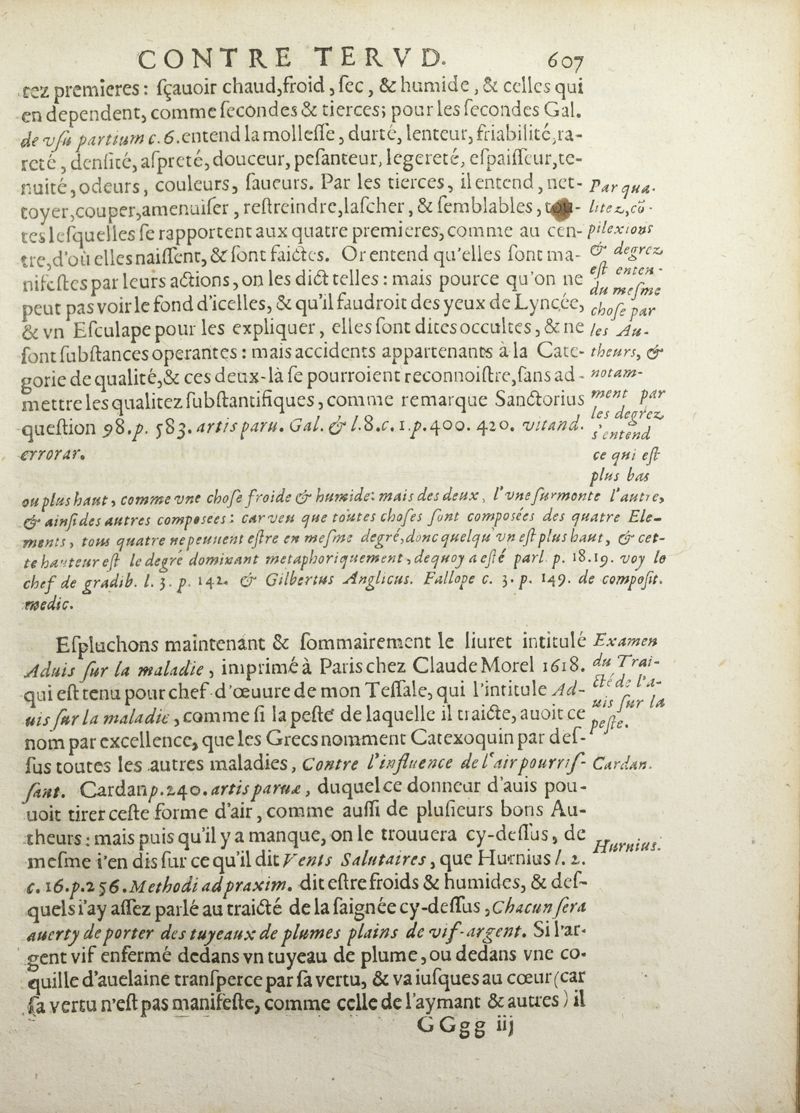 CONTRE TERVD. 607
tez premieres : sçauoir chaud,froid , sec , & humide , & celles qui
en dependent, comme secondes & tierces; pour les secondes Gal.
de vsu partium c. 6. entend la mollesse , durté, lenteur, friabilité,ra-
reté , densité, aspreté, douceur, pesanteur, legereté, espaisseur,te-
nuité,odeurs, couleurs, saueurs. Par les tierces, il entend, net-
toyer,couper,amenuiser , restreindre,lascher, & semblables ,
tes lesquelles se rapportent aux quatre premieres, comme au cen-
tre,d'où elles naissent, & sont faictes. Or entend qu'elles sont ma-
nifestes par leurs actions, on les dict telles : mais pource qu'on ne
peut pas voir le fond d'icelles, & qu'il faudroit des yeux de Lyncée,
& vn Esculape pour les expliquer, elles sont dites occultes, & ne
sont substances operantes : mais accidents appartenants à la Cate-
gorie de qualité,& ces deux-là se pourroient reconnoistre,sans ad-
mettre les qualitez substantifiques , comme remarque Sanctorius
question 98.p. 583. artis paru. Gal. & l.8.c. 1.p.400. 420. vitand.
errorar.
Par qua-
litez,cō-
plexions
& degrez
est enten-
du mesme
chose par
les Au-
theurs, &
notam-
ment par
les degrez
s'entend
ce qui est
plus bas
ou plus haut , comme vne chose froide & humide: mais des deux , l'vne surmonte l'autre,
& ainsi des autres composees : car veu que toutes choses sont composées des quatre Ele-
ments , tous quatre ne peuuent estre en mesme degré,donc quelqu'vn est plus haut, & cet-
te hauteur est le degré dominant metaphoriquement , dequoy a esté parl. p. 18.19. voy le
chef de gradib. l. 3. p. 142. & Gilbertus Anglicus. Fallope c. 3. p. 149. de composit.
medic.
Espluchons maintenant & sommairement le liuret intitulé
Aduis sur la maladie , imprimé à Paris chez Claude Morel 1618.
qui est tenu pour chef d'œuure de mon Tessale, qui l'intitule Ad-
uis sur la maladie , comme si la peste de laquelle il traicte, auoit ce
nom par excellence, que les Grecs nomment Catexoquin par des-
sus toutes les autres maladies, Contre l'influence de l'air pourris-
sant. Cardan p.240. artis paruæ , duquel ce donneur d'auis pou-
uoit tirer ceste forme d'air, comme aussi de plusieurs bons Au-
theurs : mais puis qu'il y a manque, on le trouuera cy-dessus, de
mesme i'en dis sur ce qu'il dit Vents Salutaires , que Hurnius l. 2.
c. 16.p.256. Methodi ad praxim. dit estre froids & humides, & des-
quels i'ay assez parlé au traicté de la saignée cy-dessus , Chacun sera
auerty de porter des tuyeaux de plumes plains de vif-argent. Si l'ar-
gent vif enfermé dedans vn tuyeau de plume,ou dedans vne co-
quille d'auelaine transperce par sa vertu, & va iusques au cœur (car
sa vertu n'est pas manifeste, comme celle de l'aymant & autres ) il
Examen
du Trai-
cté de l'a-
uis sur la
peste.
Cardan.
Hurnius.
GGgg iij